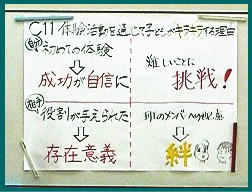 C11 体験活動を通じて子どもがキラキラする理由
自分
初めての体験
成功が自信に
難しいことに
挑戦！
相手
役割が与えられた
存在意義
メンバーへの
絆